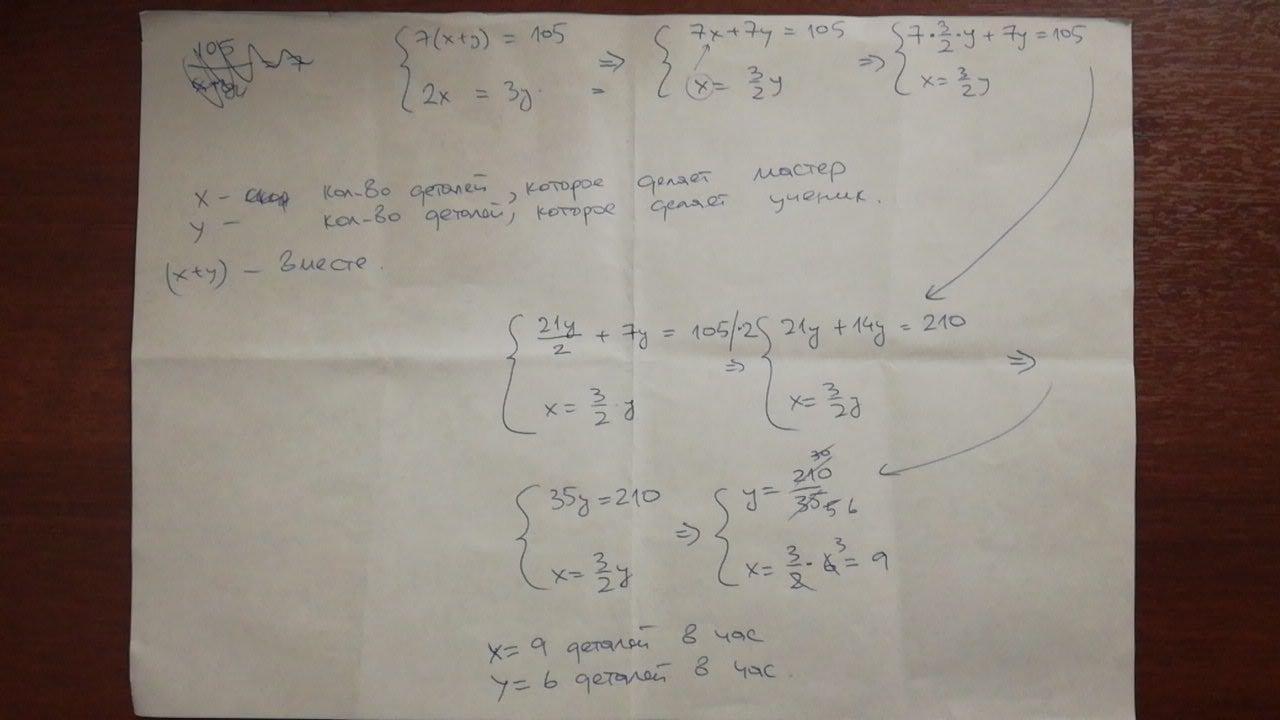 7(x+y) = 105
2x = 3y
⇒
7x+7y = 105
x = 3/2 y
⇒
7·3/2·y + 7y = 105
x = 3/2 y
x – кол-во деталей, которое делает мастер
y – кол-во деталей, которое делает ученик.
(x+y) – вместе.
21y/2 + 7y = 105 |·2
x = 3/2·y
⇒
21y + 14y = 210
x = 3/2 y
⇒
35y = 210
x = 3/2 y
⇒
y = 210/35 6
x = 3/2 · 6 = 9
x = 9 деталей в час
y = 6 деталей в час.